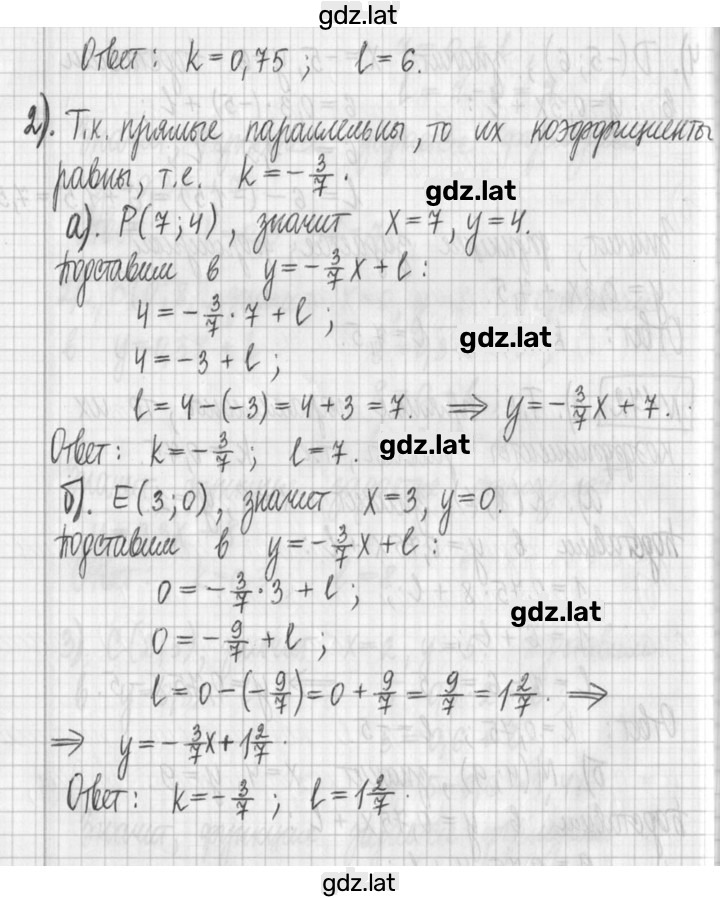 gdz.lat
Ответ: k=0,75 ; l=6.
2). Т.к. прямые параллельны, то их коэффициенты
равны, т.е. k=-3/7.
gdz.lat
а). P(7;4), значит x=7, y=4.
подставим в y=-3/7x+l:
4=-3/7·7+l;
gdz.lat
4=-3+l;
l=4-(-3)=4+3=7. ⟹ y=-3/7x+7.
Ответ: k=-3/7; l=7.
gdz.lat
б). E(3;0), значит x=3, y=0.
подставим в y=-3/7x+l:
0=-3/7·3+l;
gdz.lat
0=-9/7+l;
l=0-(-9/7)=0+9/7=9/7=1 2/7. ⟹
⟹ y=-3/7x+1 2/7.
Ответ: k=-3/7; l=1 2/7.
gdz.lat